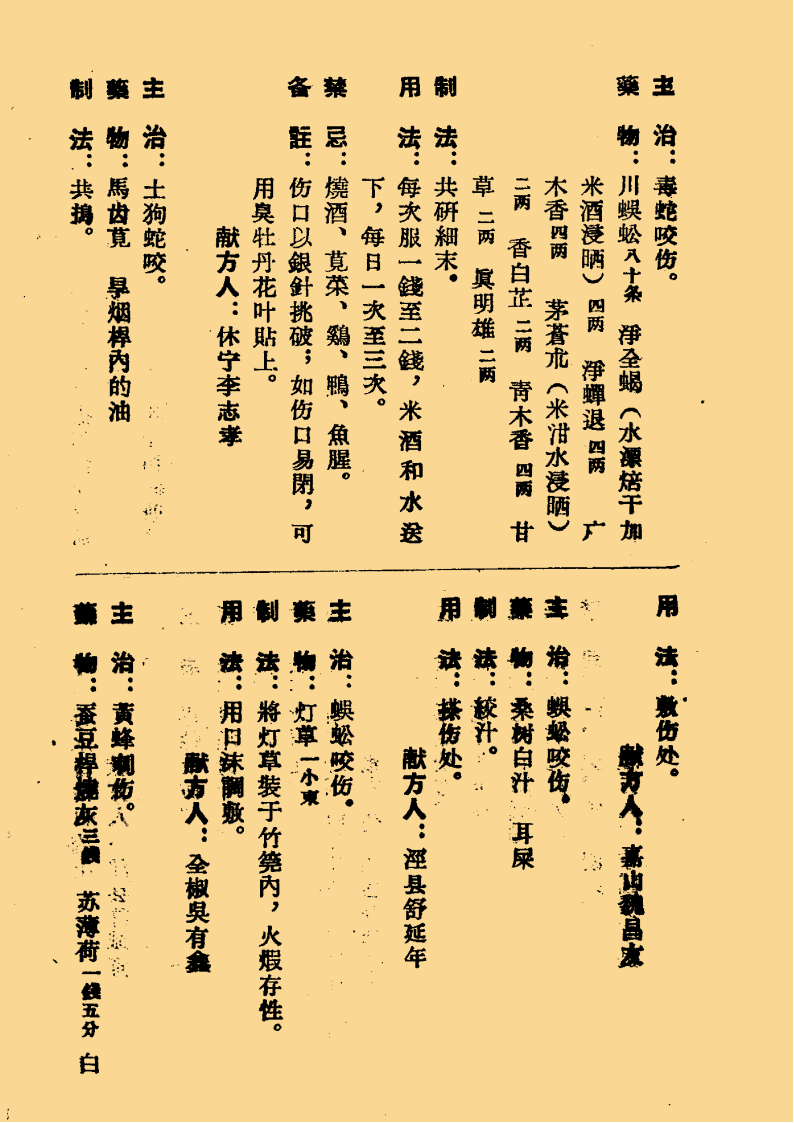 主　治：毒蛇咬伤。
藥　物：川蜈蚣八十条　淨全蝎（水漂焙干加
米酒浸晒）四两　淨蟬退四两　广
木香四两　茅蒼朮（米泔水浸晒）
二两　香白芷二两　靑木香四两　甘
草二两　眞明雄二两
制　法：共研細末。
用　法：每次服一錢至二錢，米酒和水送
下，每日一次至三次。
禁　忌：燒酒、莧菜、鷄、鴨、魚腥。
备　註：伤口以銀針挑破；如伤口易閉，可
用臭牡丹花叶貼上。
献方人：休宁李志孝
主　治：土狗蛇咬。
藥　物：馬齿莧　旱烟桿內的油
制　法：共搗。
用　法：敷伤处。
献方人：嘉山魏昌友
主　治：蜈蚣咬伤。
藥　物：桑树白汁　耳屎
制　法：絞汁。
用　法：搽伤处。
献方人：涇县舒延年
主　治：蜈蚣咬伤。
藥　物：灯草一小束
制　法：將灯草裝于竹筒內，火煅存性。
用　法：用口沫調敷。
献方人：全椒吳有鑫
主　治：黃蜂刺伤。
藥　物：蚕豆桿燒灰三錢　苏薄荷一錢五分　白